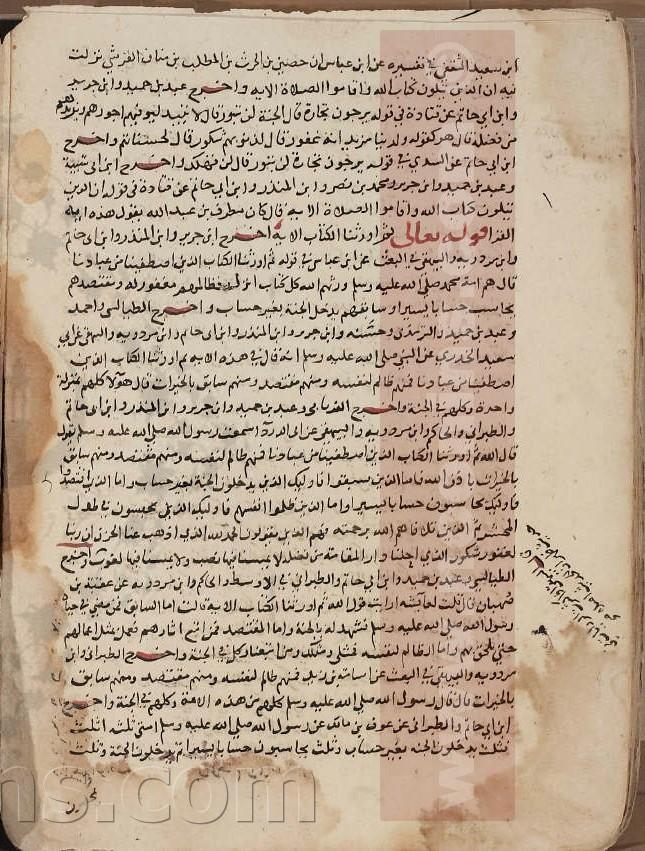 ابن سعيد الثقفي في تفسيره عن ابن عباس ان حصين بن الحرث بن المطلب بن مناف القرشي نزلت
فيه ان الذين يتلون كتاب الله واقاموا الصلاة الايه واخرج عبد بن حميد وابن جرير
وابن ابي حاتم عن قتادة في قوله يرجون تجارة قال الجنة لن تبور قال لا تبيد ليوفيهم اجورهم ويزيدهم
من فضله قال هو كقوله ولدينا مزيد انه غفور قال لذنوبهم شكور قال لحسناتهم واخرج
ابن ابي حاتم عن السدي في قوله يرجون تجارة لن تبور قال لن تهلك واخرج ابن ابي شيبة
وعبد بن حميد وابن جرير ومحمد بن نصر وابن المنذر وابن ابي حاتم عن قتادة في قوله ان الذين
يتلون كتاب الله واقاموا الصلاة الايه قال كان مطرف بن عبد الله يقول هذه ايه
القرا قوله تعالى ثم اورثنا الكتاب الايه اخرج ابن جرير وابن المنذر وابن ابي حاتم
وابن مردويه والبيهقي في البعث عن ابن عباس في قوله ثم اورثنا الكتاب الذين اصطفينا من عبادنا
قال هم امة محمد صلى الله عليه وسلم ورثهم الله كل كتاب انزل فظالمهم مغفور له ومقتصدهم
يحاسب حسابا يسيرا وسابقهم يدخل الجنة بغير حساب واخرج الطيالسي واحمد
وعبد بن حميد والترمذي وحسنه وابن جرير وابن المنذر وابن ابي حاتم وابن مردويه والبيهقي عن ابي
سعيد الخدري عن النبي صلى الله عليه وسلم انه قال في هذه الايه ثم اورثنا الكتاب الذين
اصطفينا من عبادنا فمنهم ظالم لنفسه ومنهم مقتصد ومنهم سابق بالخيرات قال هولا كلهم بمنزلة
واحدة وكلهم في الجنة واخرج الفريابي وعبد بن حميد وابن جرير وابن المنذر وابن ابي حاتم
والطبراني والحاكم وابن مردويه والبيهقي عن ابي الدردا سمعت رسول الله صلى الله عليه وسلم يقول
قال الله ثم اورثنا الكتاب الذين اصطفينا من عبادنا فمنهم ظالم لنفسه ومنهم مقتصد ومنهم سابق
بالخيرات باذن الله فاما الذين سبقوا فاوليك الذين يدخلون الجنة بغير حساب واما الذين اقتصدوا
فاوليك يحاسبون حسابا يسيرا واما الذين ظلموا انفسهم فاوليك الذين يحبسون في طول
المحشر ثم الذين تلافاهم الله برحمته فهم الذين يقولون الحمد لله الذي اذهب عنا الحزن ان ربنا
لغفور شكور الذي احلنا دار المقامة من فضله لا يمسنا فيها نصب ولا يمسنا فيها لغوب واخرج
الطيالسي وعبد بن حميد وابن ابي حاتم والطبراني في الاوسط والحاكم وابن مردويه عن عقبة بن
صهبان قال قلت لعايشه ارايت قول الله ثم اورثنا الكتاب الايه قالت اما السابق فمن مضى في حياة
رسول الله صلى الله عليه وسلم فشهد له بالجنة واما المقتصد فمن اتبع اثارهم فعمل بمثل اعمالهم
حتى يلحق بهم واما الظالم لنفسه فمثلي ومثلك ومن اتبعنا وكل في الجنة واخرج الطبراني وابن
مردويه والبيهقي في البعث عن اسامة بن زيد فمنهم ظالم لنفسه ومنهم مقتصد ومنهم سابق
بالخيرات قال قال رسول الله صلى الله عليه وسلم كلهم من هذه الامة وكلهم في الجنة واخرج
ابن ابي حاتم والطبراني عن عوف بن مالك عن رسول الله صلى الله عليه وسلم امتي ثلثه اثلث
فثلث يدخلون الجنه بغير حساب وثلث يحاسبون حسابا يسيرا ثم يدخلون الجنة وثلث
ns.com